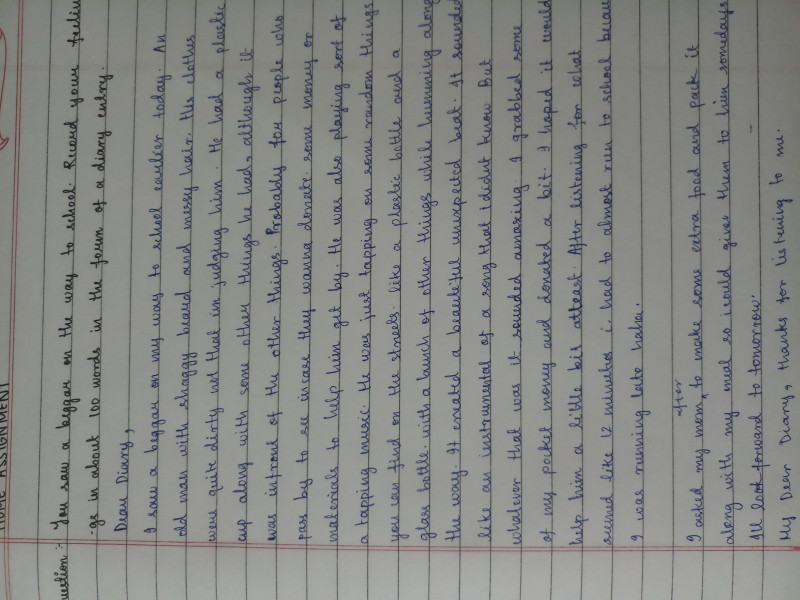 HOME ASSIGNMENT
uestion :- You saw a beggar on the way to school. Record your feelin
-gs in about 100 words in the form of a diary entry.
Dear Diary,
I saw a beggar on my way to school earlier today. An
old man with shaggy beard and messy hair. His clothes
were quite dirty not that im judging him. He had a plastic
cup along with some other things he had, although it
was infront of the other things. Probably for people who
pass by to see incase they wanna donate some money or
materials to help him get by. He was also playing sort of
a tapping music. He was just tapping on some random things
you can find on the streets. like a plastic bottle and a
glass bottle with a bunch of other things while humming along
the way. It created a beautiful unexpected beat. It sounded
like an instrumental of a song that i didnt know. But
whatever that was it sounded amazing. I grabbed some
of my pocket money and donated a bit. I hoped it would
help him a little bit atleast. After listening for what
seemed like 12 minutes i had to almost run to school becau
I was running late haha.
I asked my mom, after to make some extra food and pack it
along with my meal so i could give them to him somedays
Ill look forward to tomorrow.
My Dear Diary, thanks for listening to me.